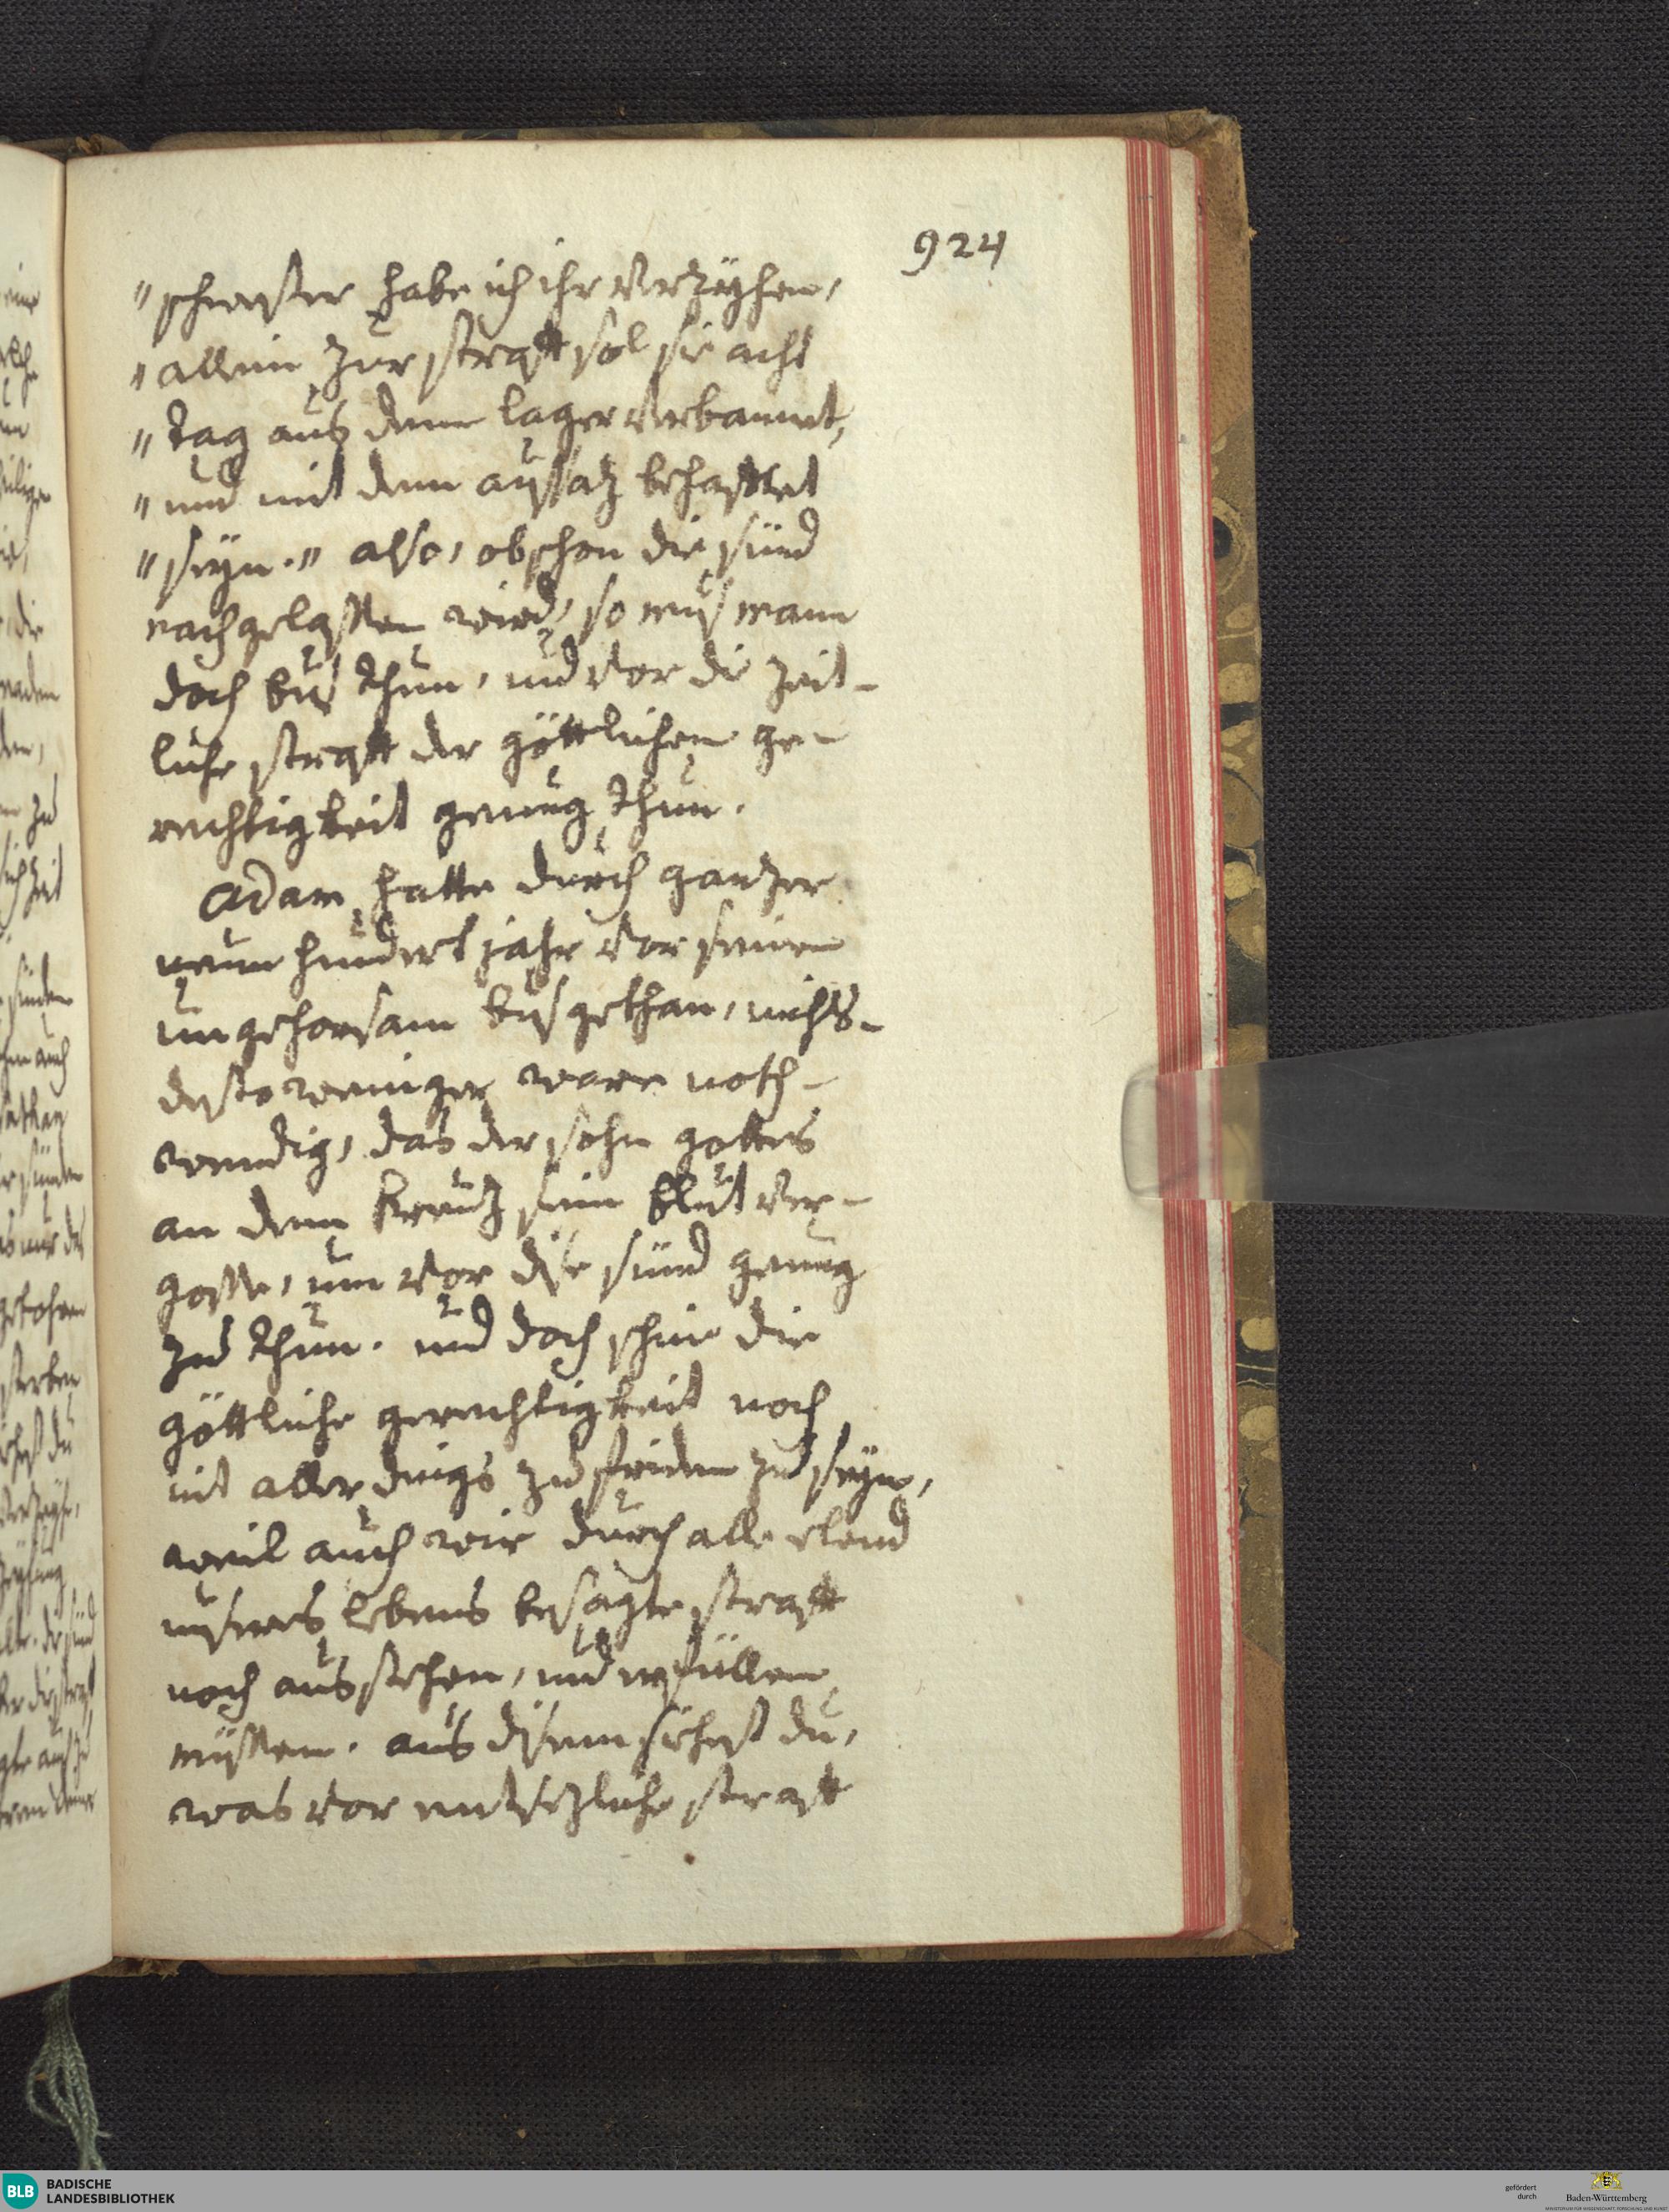 924
"schwester habe ich ihr verzeyhen,
"allein zur straff sol sie acht
"tag aus dem lager verbannet,
"und mit dem aussatz behafftet
"seyn." also, obschon die sünd
nachgelassen wird, so mus mann
doch bus thun, und vor die zeit-
liche straff der göttlichen ge-
rechtigkeit genug thun.
Adam hatte durch ganzer
neun hundert jahr vor seinen
ungehorsam bus gethan, nichts-
desto weniger ware noth-
wendig, das der sohn gottes
an dem kreutz sein blut ver-
gosse, um vor dise sünd genug
zu thun. und doch schine die
göttliche gerechtigkeit noch
nit aller dings zu friden zu seyn,
weil auch wir durch alle elend
unseres lebens besagte straff
noch ausstehen, und erfüllen
müssen. aus disem sihest du,
was vor entsezliche straff
BLB BADISCHE
LANDESBIBLIOTHEK
gefördert
durch
Baden-Württemberg
MINISTERIUM FÜR WISSENSCHAFT, FORSCHUNG UND KUNST